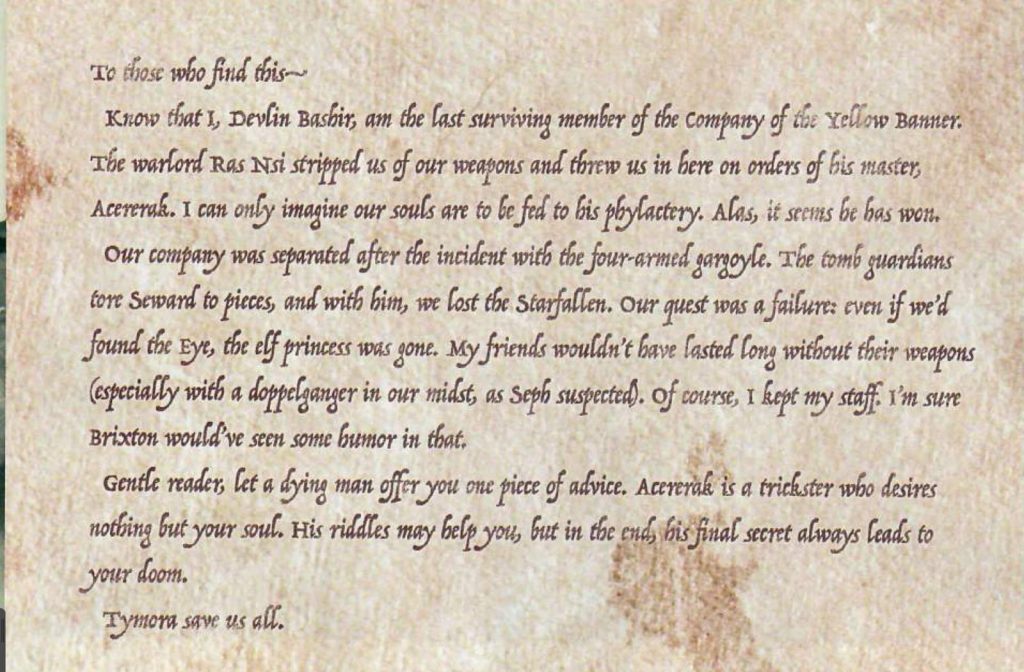 To those who find this~
Know that I, Devlin Bashir, am the last surviving member of the Company of the Yellow Banner.
The warlord Ras Nsi stripped us of our weapons and threw us in here on orders of his master,
Acererak. I can only imagine our souls are to be fed to his phylactery. Alas, it seems he has won.
Our company was separated after the incident with the four-armed gargoyle. The tomb guardians
tore Seward to pieces, and with him, we lost the Starfallen. Our quest was a failure: even if we'd
found the Eye, the elf princess was gone. My friends wouldn't have lasted long without their weapons
(especially with a doppelganger in our midst, as Seph suspected). Of course, I kept my staff. I'm sure
Brixton would've seen some humor in that.
Gentle reader, let a dying man offer you one piece of advice. Acererak is a trickster who desires
nothing but your soul. His riddles may help you, but in the end, his final secret always leads to
your doom.
Tymora save us all.